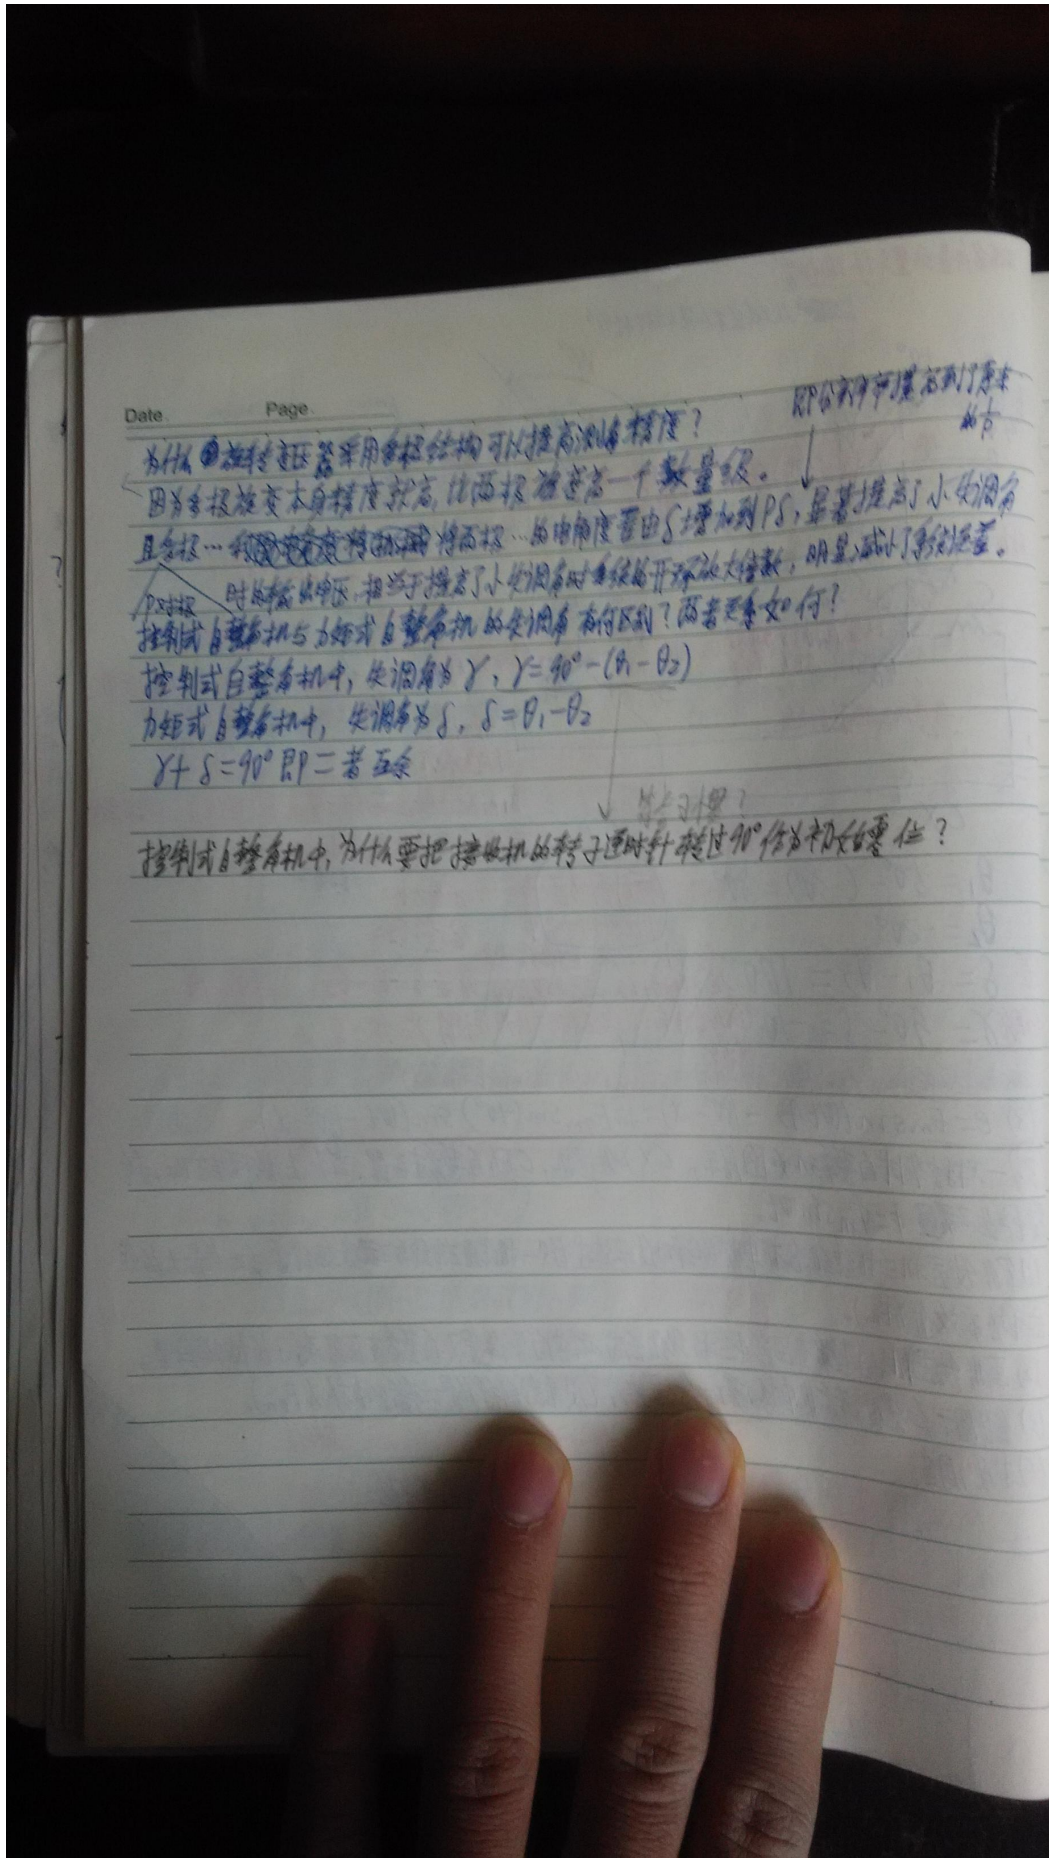 Date. Page.
即分辨率提高到了原来
的1/P
为什么旋转变压器采用多极结构可以提高测角精度？
因为多极旋变本身精度就高，比两极旋变高一个数量级。
且多极… 将两极…的电角度置由δ增加到Pδ，显著提高了小失调角
P对极 时的输出电压，相当于提高了小失调角时系统的开环放大倍数，明显减小了系统误差。
控制式自整角机与力矩式自整角机的失调角有何区别？两者关系如何？
控制式自整角机中，失调角为γ，γ=90°-(θ₁-θ₂)
力矩式自整角机中，失调角为δ，δ=θ₁-θ₂
γ+δ=90°即二者互余
控制式自整角机中，为什么要把接收机的转子逆时针转过90°作为初始零位？